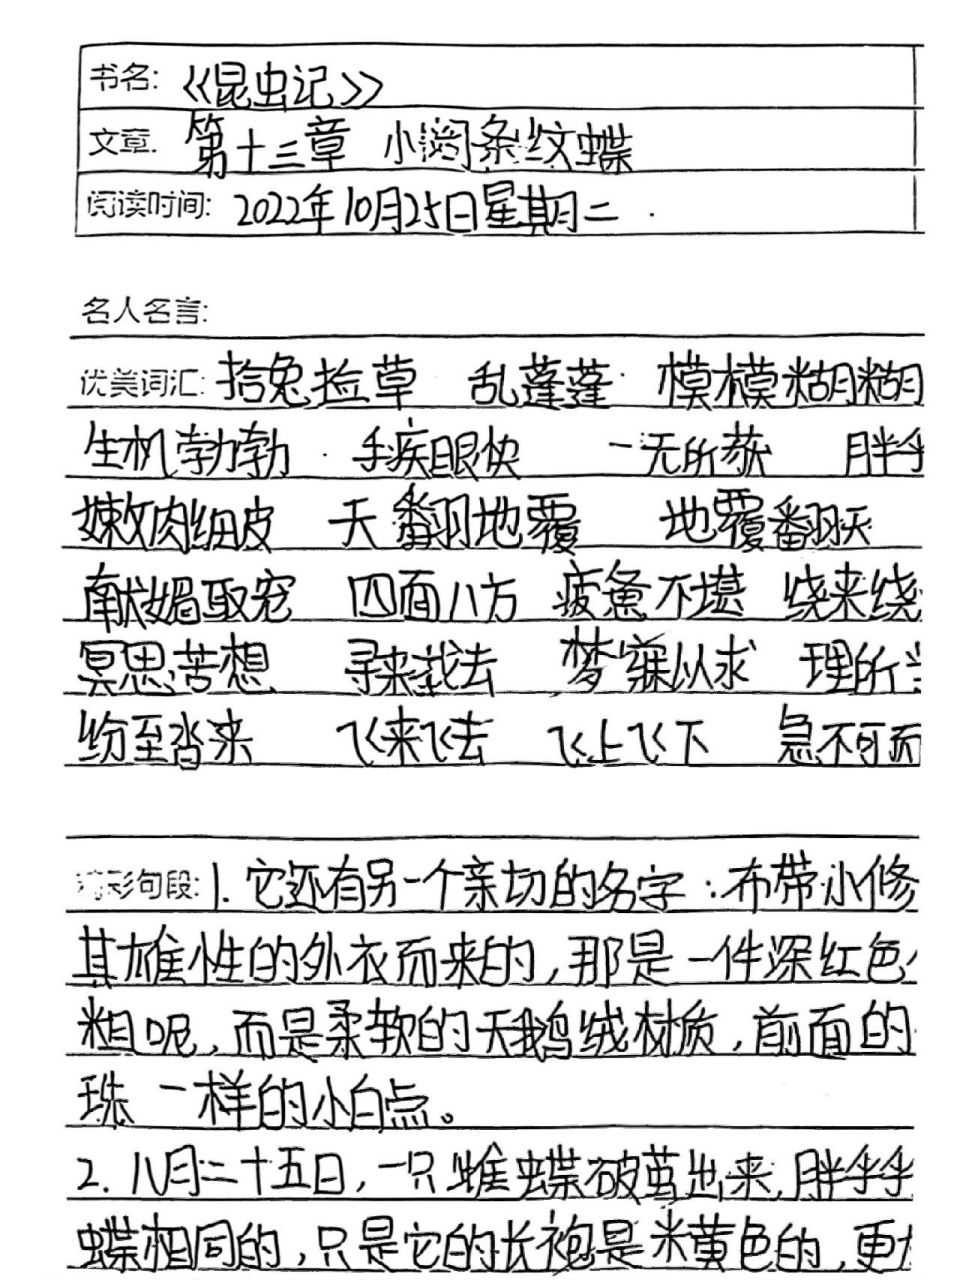 书名:《昆虫记》
文章. 第十三章 小阔条纹蝶
阅读时间: 2022年10月25日星期二.
名人名言:
优美词汇: 拾兔捡草 乱蓬蓬 模模糊糊
生机勃勃 手疾眼快 一无所获 胖乎
嫩肉细皮 天翻地覆 地覆翻天
献媚取宠 四面八方 疲惫不堪 绕来绕
冥思苦想 寻来找去 梦寐以求 理所
纷至沓来 飞来飞去 飞上飞下 急不可而
精彩句段: 1. 它还有另一个亲切的名字:布带小修
其雄性的外衣而来的,那是一件深红色
粗呢,而是柔软的天鹅绒材质,前面的
珠一样的小白点。
2. 八月二十五日,一只雌蝶破茧出来,胖乎乎
蝶相同的,只是它的长袍是米黄色的,更